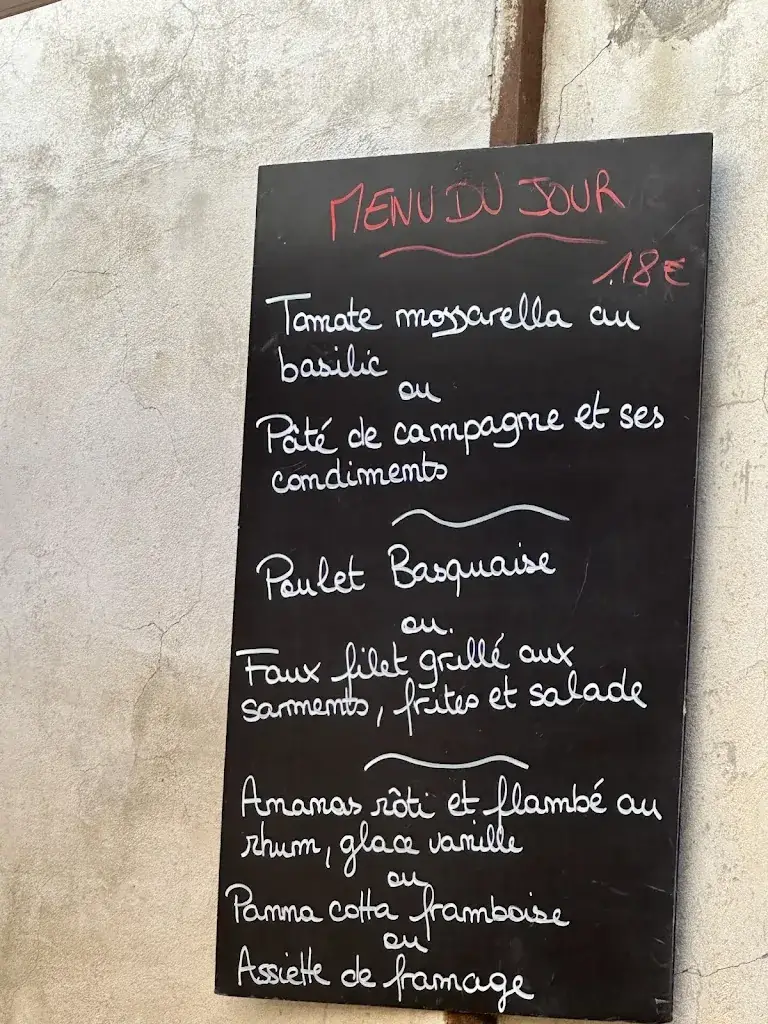 MENU DU JOUR
18€
Tomate mozzarella au
basilic
ou
Pâté de campagne et ses
condiments
Poulet Basquaise
ou.
Faux filet grillé aux
sarments, frites et salade
Ananas rôti et flambé au
rhum, glace vanille
ou
Panna cotta framboise
ou
Assiette de fromage